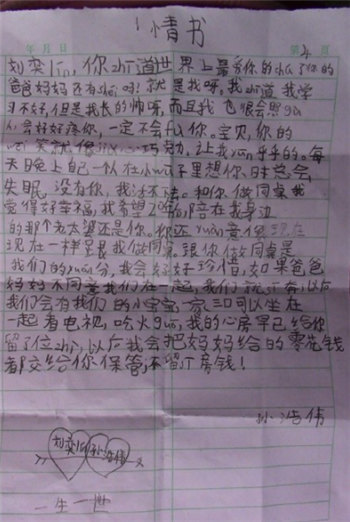 情书
年 月 日
第 页
刘奕lin,你zhi道世界上最爱你的chu了你的
爸爸妈妈还有shei吗?就是我呀。我zhi道 我学
习不好,但是我长的帅呀,而且我也很会
们会好好疼你,一定不会 你。宝贝,你的
笑就像 巧 力,让我 乎乎的。每
天晚上自己一个人在小 里想你时总会
失眠,没有你,我活不下去。和你做同桌我
觉得好幸福,我希望 陪在我身边
的那个老太婆还是你。你还 意像现在
现在一样是我 做同桌。跟你做同桌是
我们的yuán分,我会好好珍惜,如果爸爸
妈妈不同意我们在一起,我们就 ,以后
我们会有我们的小宝宝一家三口可以坐在
一起看电视,吃火guo,我的心房早已给你
留了位zhi,以后我会把妈妈给的零花钱
都交给你保管,还留了房钱!
孙浩伟
刘奕lin 孙浩伟
一生一世